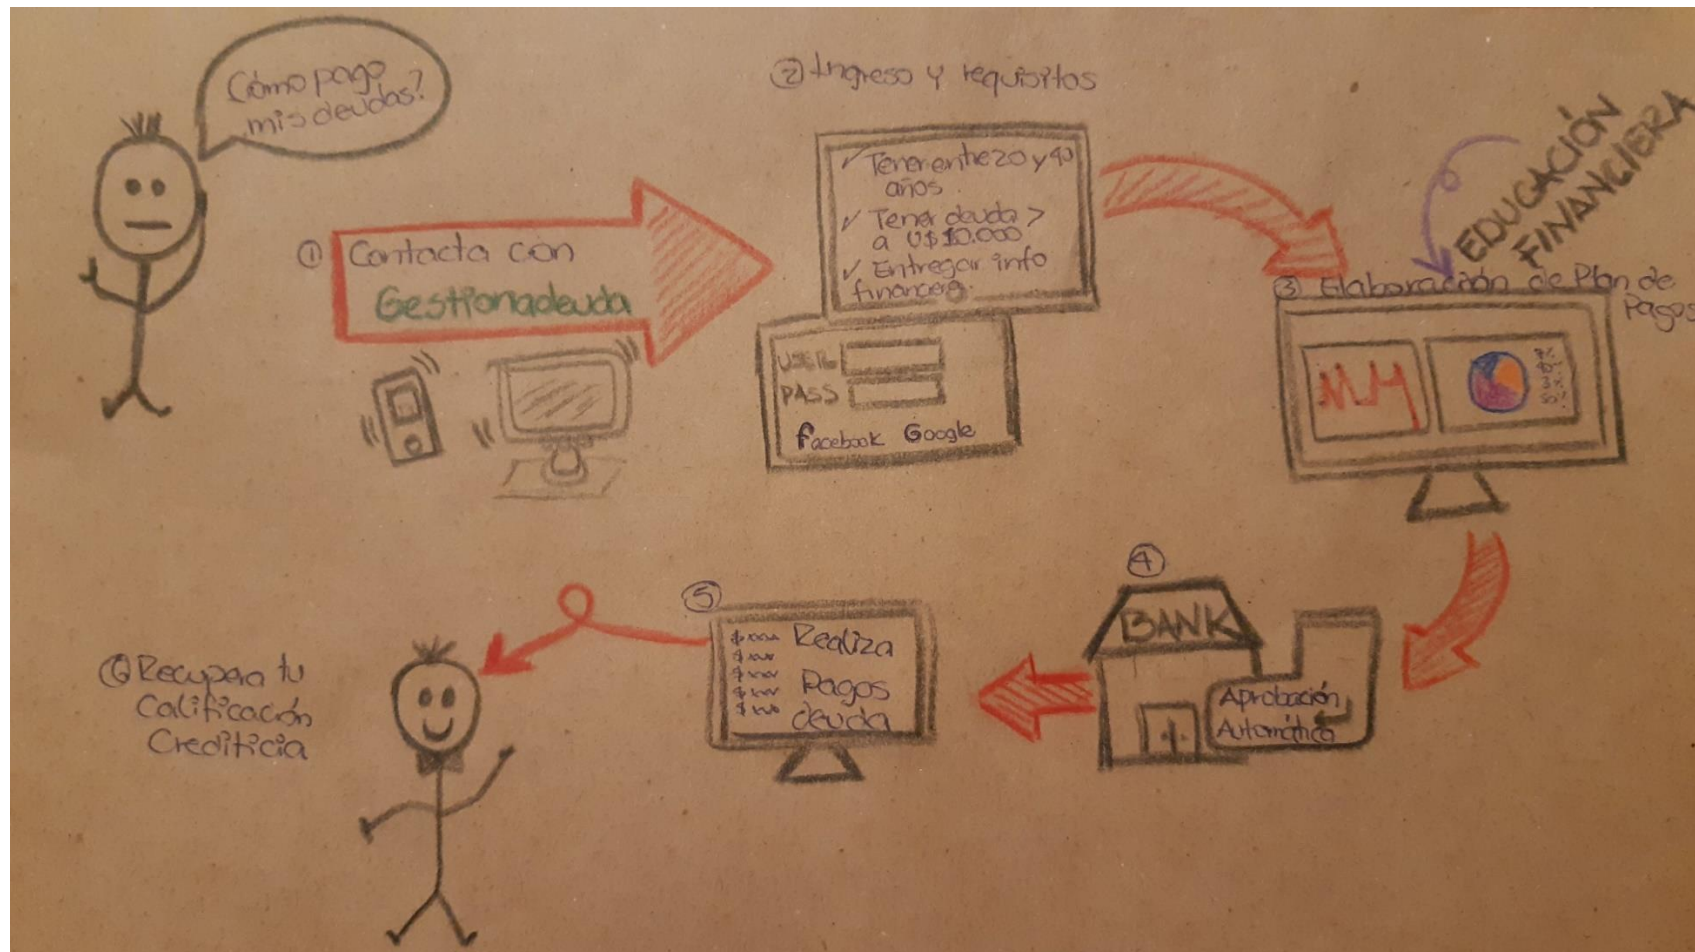 Cómo pago
mis deudas?
① Contacta con
Gestionadeuda
② Ingreso y requisitos
✓ Tener entre 20 y 40
años
✓ Tener deuda >
a U$ 10.000
✓ Entregar info
financiera.
USER
PASS
facebook Google
EDUCACIÓN
FINANCIERA
③ Elaboración de Plan de
Pagos
④
BANK
Aprobación
Automática
⑤
Realiza
Pagos
deuda
⑥ Recupera tu
Calificación
Crediticia